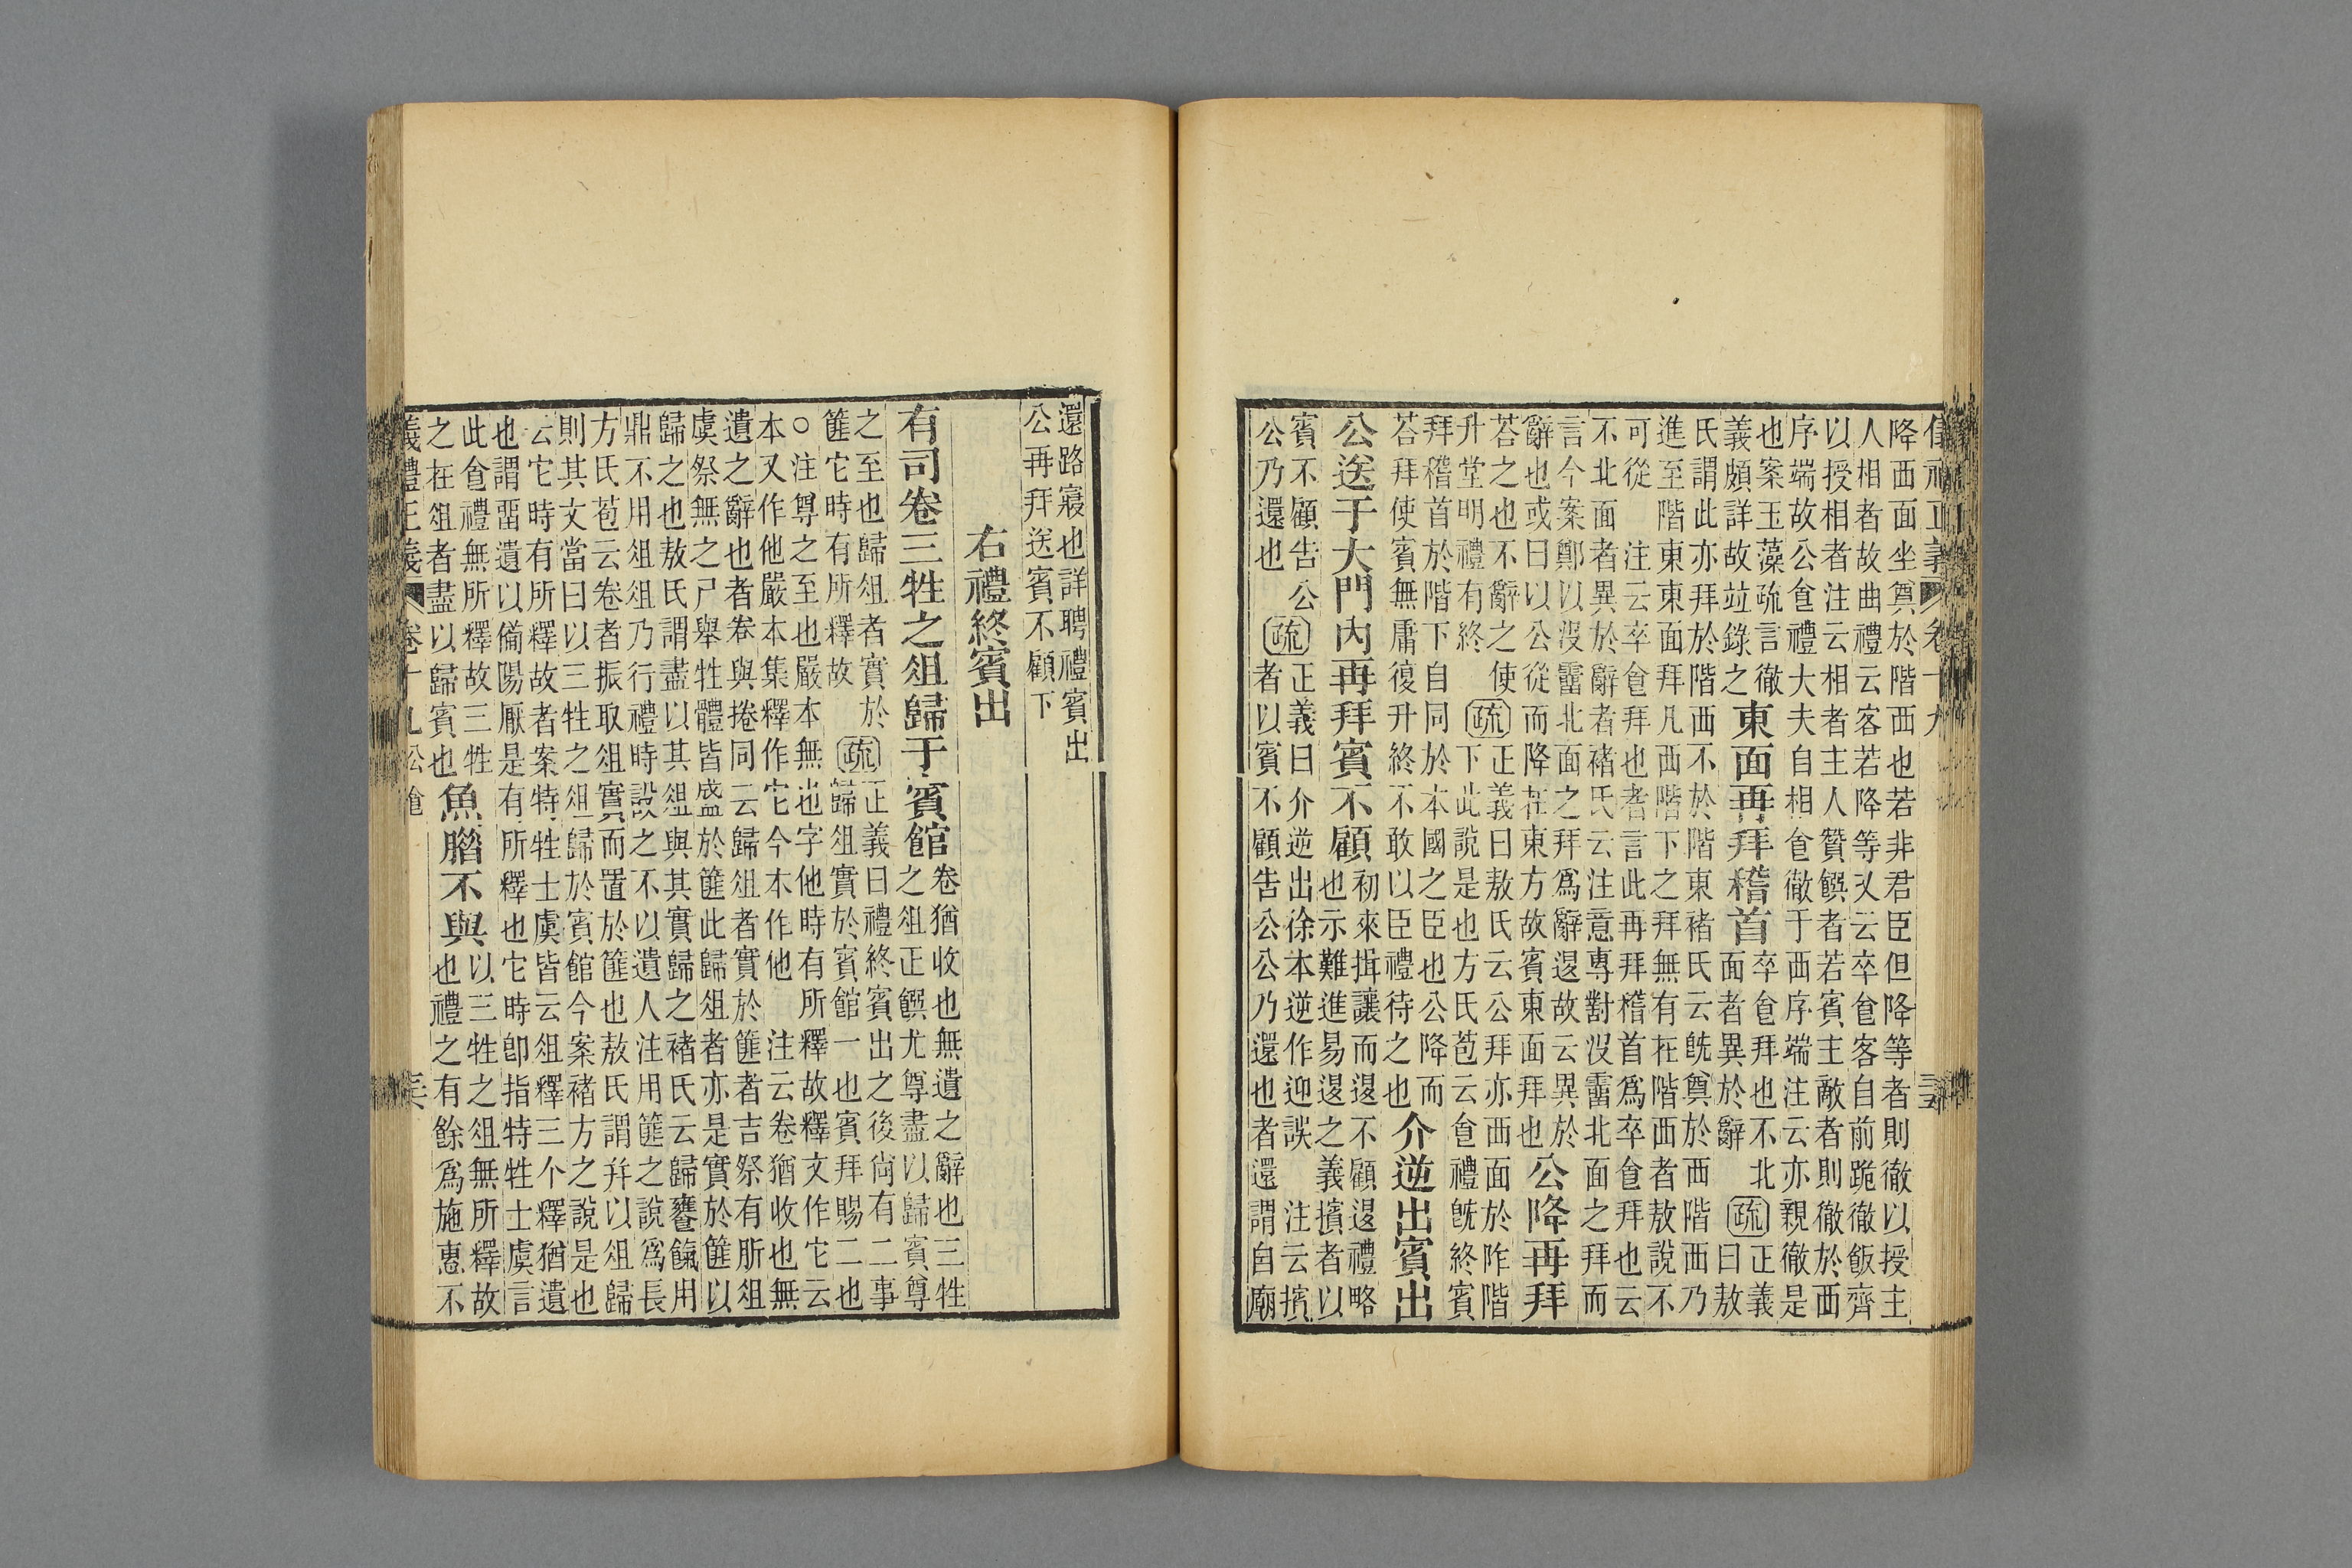 降西面坐奠於階西也若非君臣但降等者則徹以授主
人相者故曲禮云客若降等又云卒食客自前跪徹飯齊
以授相者注云相者主人贊饌者若賓主敵者則徹於西
序端故公食禮大夫自相食徹于西序端注云亦親徹是
也案玉藻疏言徹
義頗詳故竝錄之
東面再拜稽首
卒食拜也不北
面者異於辭
疏
正義
曰敖
氏謂此亦拜於階西不於階東褚氏云旣奠於西階西乃
進至階東東面拜凡西階下之拜無有在階西者敖說不
可從 注云卒食拜也者言此再拜稽首爲卒食拜也云
不北面者異於辭者褚氏云注意專對沒霤北面之拜而
言今案鄭以沒霤北面之拜爲辭退故云異於
辭也或曰以公從而降在東方故賓東面拜也
公降再拜
荅之也不辭之使
升堂明禮有終
疏
正義曰敖氏云公拜亦西面於阼階
下此說是也方氏苞云食禮旣終賓
拜稽首於階下自同於本國之臣也公降而
荅拜使賓無庸復升終不敢以臣禮待之也
介逆出賓出
公送于大門內再拜賓不顧
初來揖讓而退不顧退禮略
也示難進易退之義擯者以
賓不顧告公
公乃還也
疏
正義曰介逆出徐本逆作迎誤 注云擯
者以賓不顧告公公乃還也者還謂自廟
還路寢也詳聘禮賓出
公再拜送賓不顧下
右禮終賓出
有司卷三牲之俎歸于賓館
卷猶收也無遺之辭也三牲
之俎正饌尤尊盡以歸賓尊
之至也歸俎者實於
篚它時有所釋故
疏
正義曰禮終賓出之後尙有二事
歸俎實於賓館一也賓拜賜二也
○注尊之至也嚴本無也字他時有所釋故釋文作它云
本又作他嚴本集釋作它今本作他 注云卷猶收也無
遺之辭也者卷與捲同云歸俎者實於篚者吉祭有肵俎
虞祭無之尸舉牲體皆盛於篚此歸俎者亦是實於篚以
歸之也敖氏謂盡以其俎與其實歸之褚氏云歸饔餼用
鼎不用俎俎乃行禮時設之不以遺人注用篚之說爲長
方氏苞云卷者振取俎實而置於篚也敖氏謂幷以俎歸
則其文當曰以三牲之俎歸於賓館今案褚方之說是也
云它時有所釋故者案特牲士虞皆云俎釋三个釋猶遺
也謂畱遺以備陽厭是有所釋也它時卽指特牲士虞言
此食禮無所釋故三牲
之在俎者盡以歸賓也
魚腊不與
以三牲之俎無所釋故
也禮之有餘爲施惠不